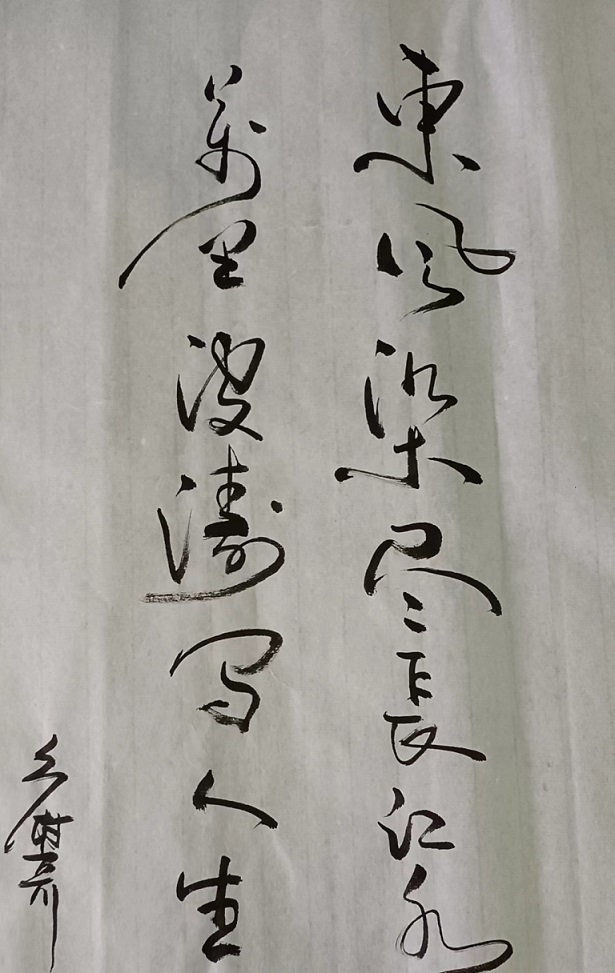 東風染尽長江水
萬里波濤写人生